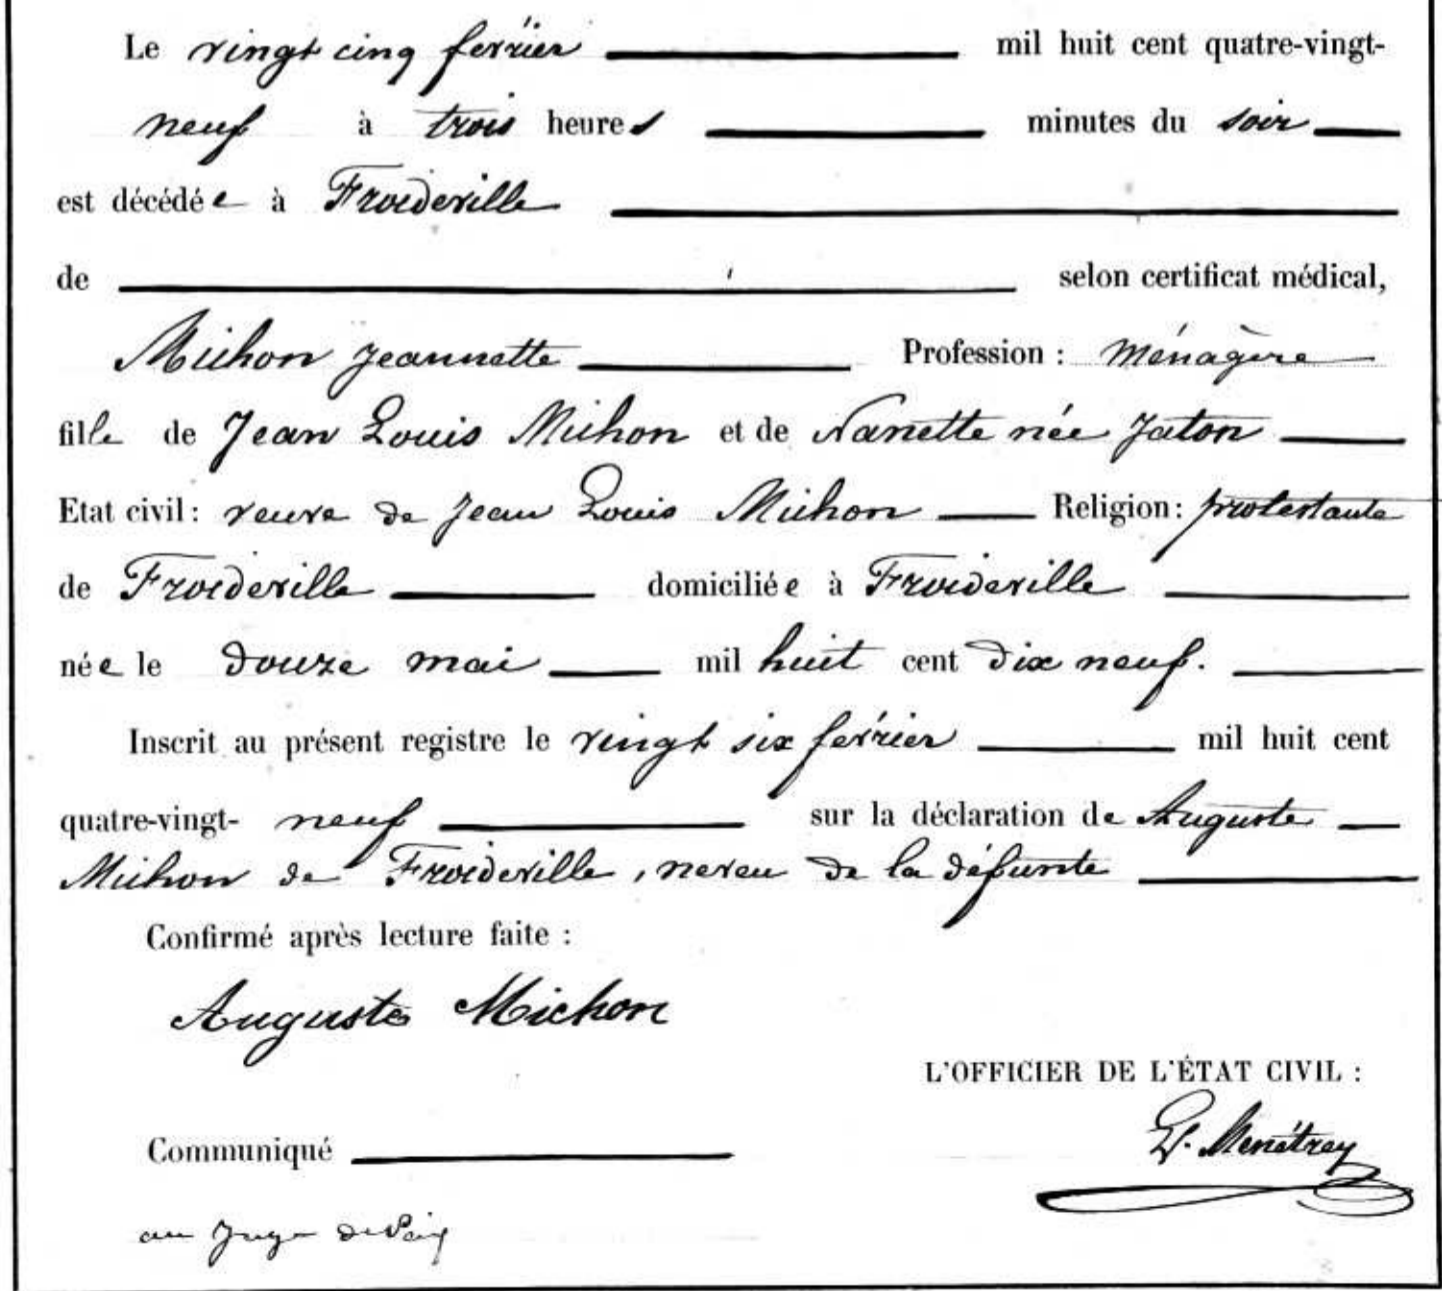 Le vingt cinq février mil huit cent quatre-vingt-
neuf à trois heures minutes du soir
est décédée à Froideville
de selon certificat médical,
Michon Jeannette Profession : Ménagère
fille de Jean Louis Michon et de Nanette née Jaton
Etat civil : veuve de Jean Louis Michon Religion : protestante
de Froideville domiciliée à Froideville
née le douze mai mil huit cent dix neuf.
Inscrit au présent registre le vingt six février mil huit cent
quatre-vingt- neuf sur la déclaration de Auguste
Michon de Froideville, neveu de la défunte
Confirmé après lecture faite :
Auguste Michon
L'OFFICIER DE L'ÉTAT CIVIL :
Ménétrey
Communiqué
au Juge de Paix